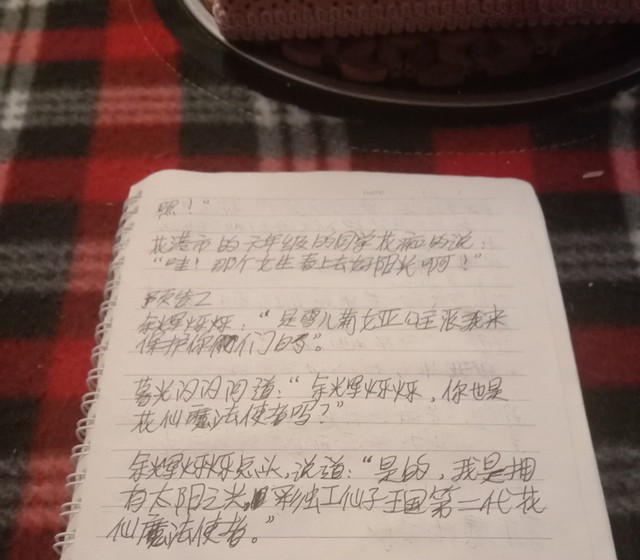 嗯！"
花港市的六年级的同学花痴的说：
"哇！那个女生看上去好阳光啊！"
预告2
余辉烁烁："是雪儿菊女亚公主派我来
保护你们的"。
暮光闪闪问道："余辉烁烁，你也是
花仙魔法使者吗？"
余辉烁烁点头，说道："是的，我是拥
有太阳之光，彩虹仙子王国第二代花
仙魔法使者。"